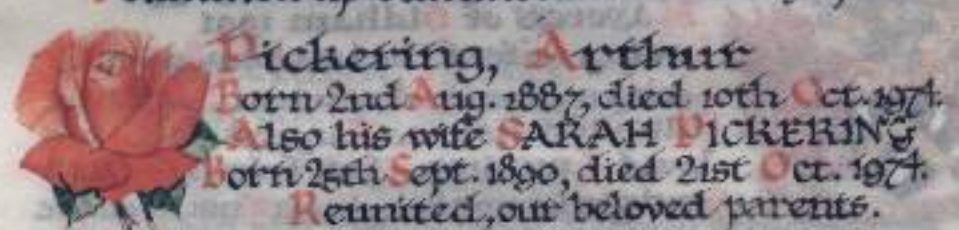 Pickering, Arthur
Born 2nd Aug. 1887, died 10th Oct. 1974.
Also his wife SARAH PICKERING
Born 25th Sept. 1890, died 21st Oct. 1974.
Reunited, our beloved parents.